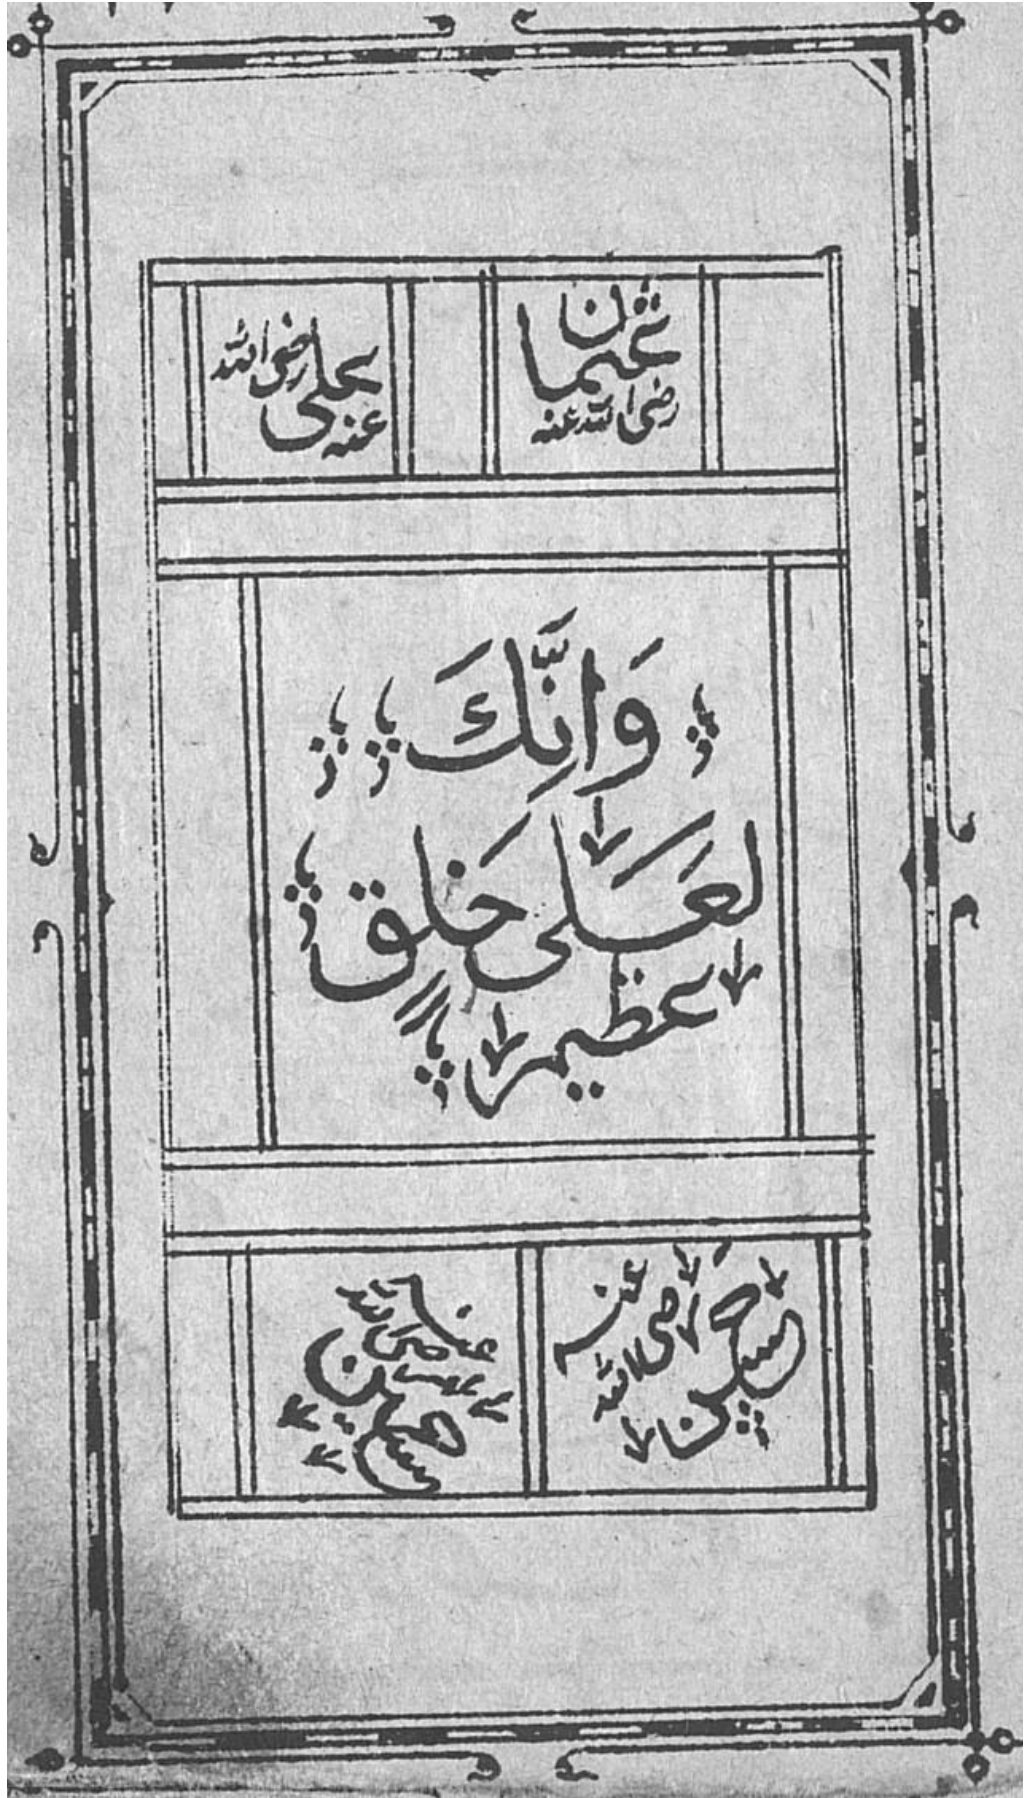 عثمان
رضى الله عنه
على رضى الله
عنه
وَاِنَّكَ
لَعَلى خَلِق
عظيم
حسين رضى الله عنه
حسن رضى الله عنه